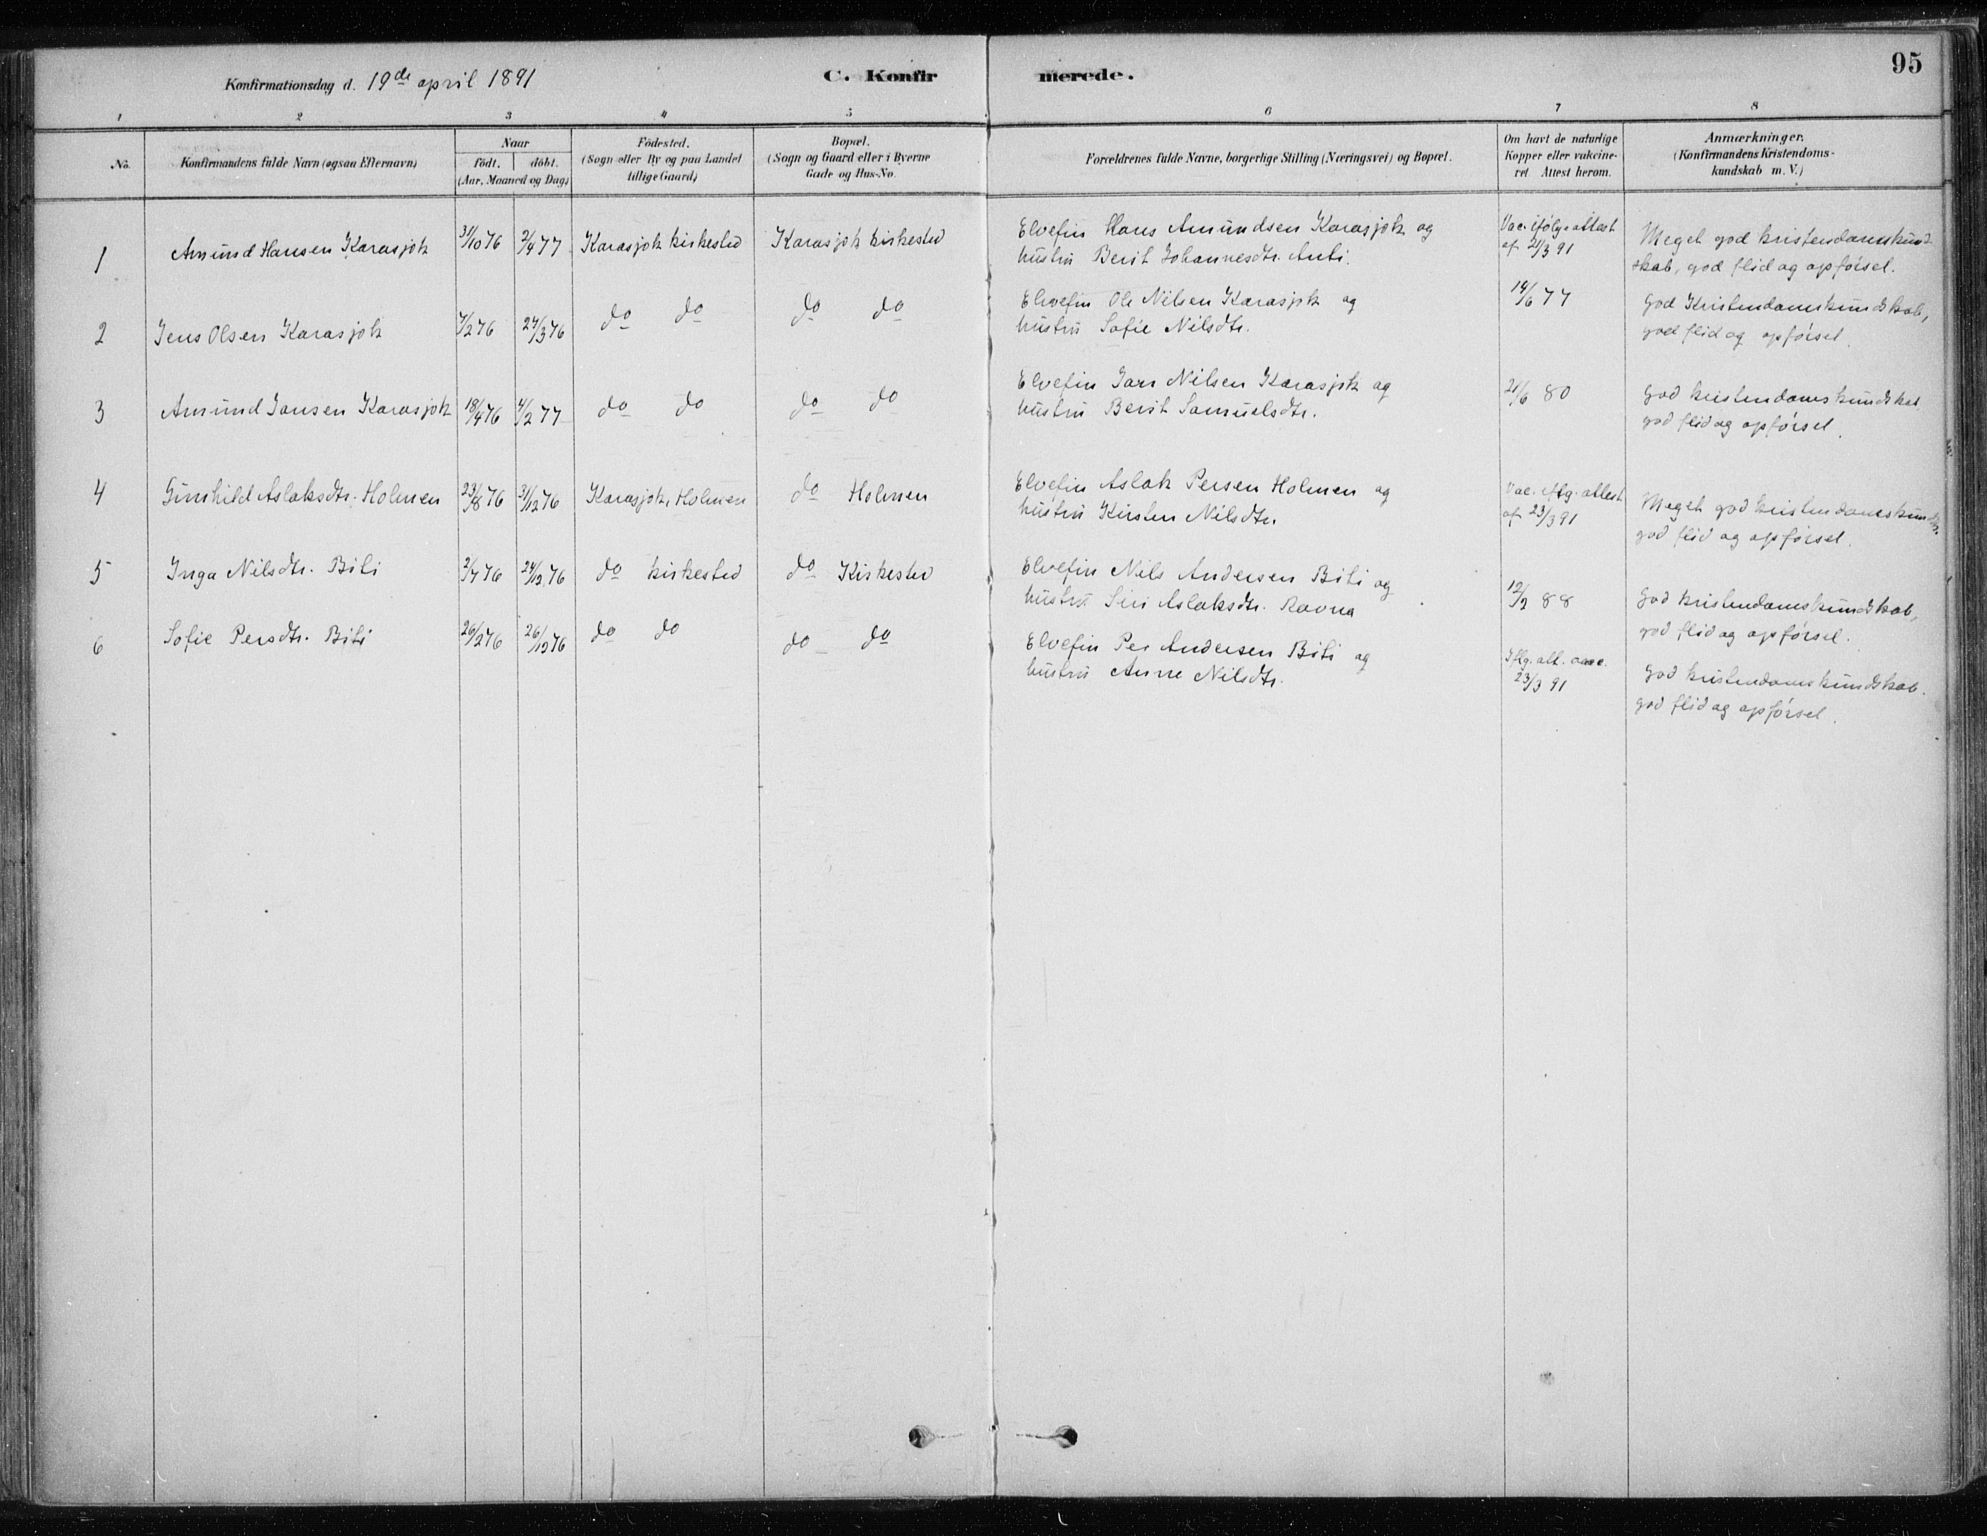 95
Konfirmationsdag d. 19de april 1891
C. Konfir merede.
1 2 3 4 5 6 7 8
No.
Konfirmandens fulde Navn (ogsaa Efternavn)
Naar
födt. döbt.
(Aar, Maaned og Dag)
Födested.
(Sogn eller By og paa Landet
tillige Gaard)
Bopæl.
(Sogn og Gaard eller i Byerne
Gade og Hus-No.
Forældrenes fulde Navne, borgerlige Stilling (Næringsvei) og Bopæl.
Om havt de naturlige
Kopper eller vakcine-
ret Attest herom.
Anmærkninger.
(Konfirmandens Kristendoms-
kundskab m. V.)
1 Amund Hansen Karasjok 31/10 76 2/4 77 Karasjok kirkested Karasjok kirkested Elvefin Hans Amundsen Karasjok og
hustru Berit Johannesdtr. Anti.
Vac. ifølge attest
af 21/3 91
Meget god kristendomskund
skab, god flid og opførsel.
2 Jens Olsen Karasjok 7/2 76 27/3 76 do do do do Elvefin Ole Nilsen Karasjok og
hustru Sofie Nilsdtr.
19/6 77
God Kristendomskundskab,
god flid og opførsel.
3 Amund Jansen Karasjok 18/4 76 4/2 77 do do do do Elvefin Jan Nilsen Karasjok og
hustru Berit Samuelsdtr.
21/6 80
God kristendomskundskab
god flid og opførsel.
4 Gunhild Aslaksdtr. Holmen 23/8 76 31/12 76 Karasjok, Holmen do Holmen Elvefin Aslak Persen Holmen og
hustru Kirsten Nilsdtr.
Vac. iflg. attest
af 23/3 91
Meget god kristendomskundsk.
god flid og opførsel.
5 Inga Nilsdtr. Biti 2/7 76 24/12 76 do kirkested do Kirkested Elvefin Nils Andersen Biti og
hustru Siri Aslaksdtr. Ravna
12/2 88
God kristendomskundskab,
god flid og opførsel.
6 Sofie Persdtr. Biti 26/2 76 26/12 76 do do do do Elvefin Per Andersen Biti og
hustru Anne Nilsdtr.
Iflg. att. vacc.
23/3 91
God kristendomskundskab.
god flid og opførsel.